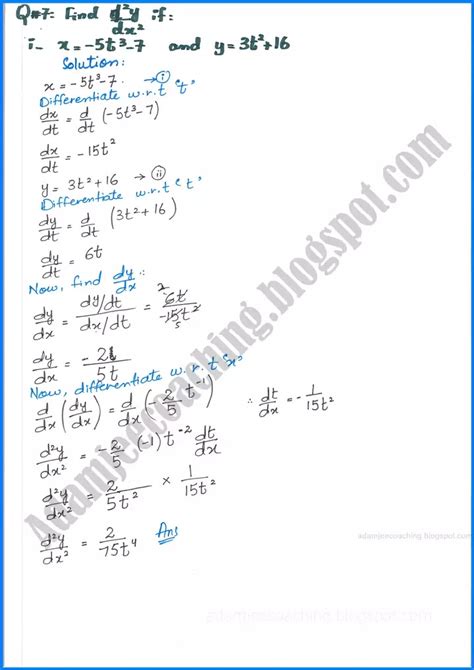 Q#7: Find d²y/dx² if:
i- x = -5t³-7 and y = 3t²+16
Solution:
x = -5t³-7 → (i)
Differentiate w.r.t 't'
dx/dt = d/dt (-5t³-7)
dx/dt = -15t²
y = 3t²+16 → (ii)
Differentiate w.r.t 't'
dy/dt = d/dt (3t²+16)
dy/dt = 6t
Now, find dy/dx :
dy/dx = dy/dt / dx/dt = 6t / -15t² 2 5
dy/dx = -2 / 5t
Now, differentiate w.r.t 'x'
d/dx (dy/dx) = d/dx (-2/5 t⁻¹) ∴ dt/dx = -1/15t²
d²y/dx² = -2/5 (-1) t⁻² dt/dx
d²y/dx² = 2/5t² × 1/15t²
d²y/dx² = 2/75t⁴ Ans
Adamjeecoaching.blogspot.com
adamjeecoaching.blogspot.com
adamjeecoaching.blogspot.com